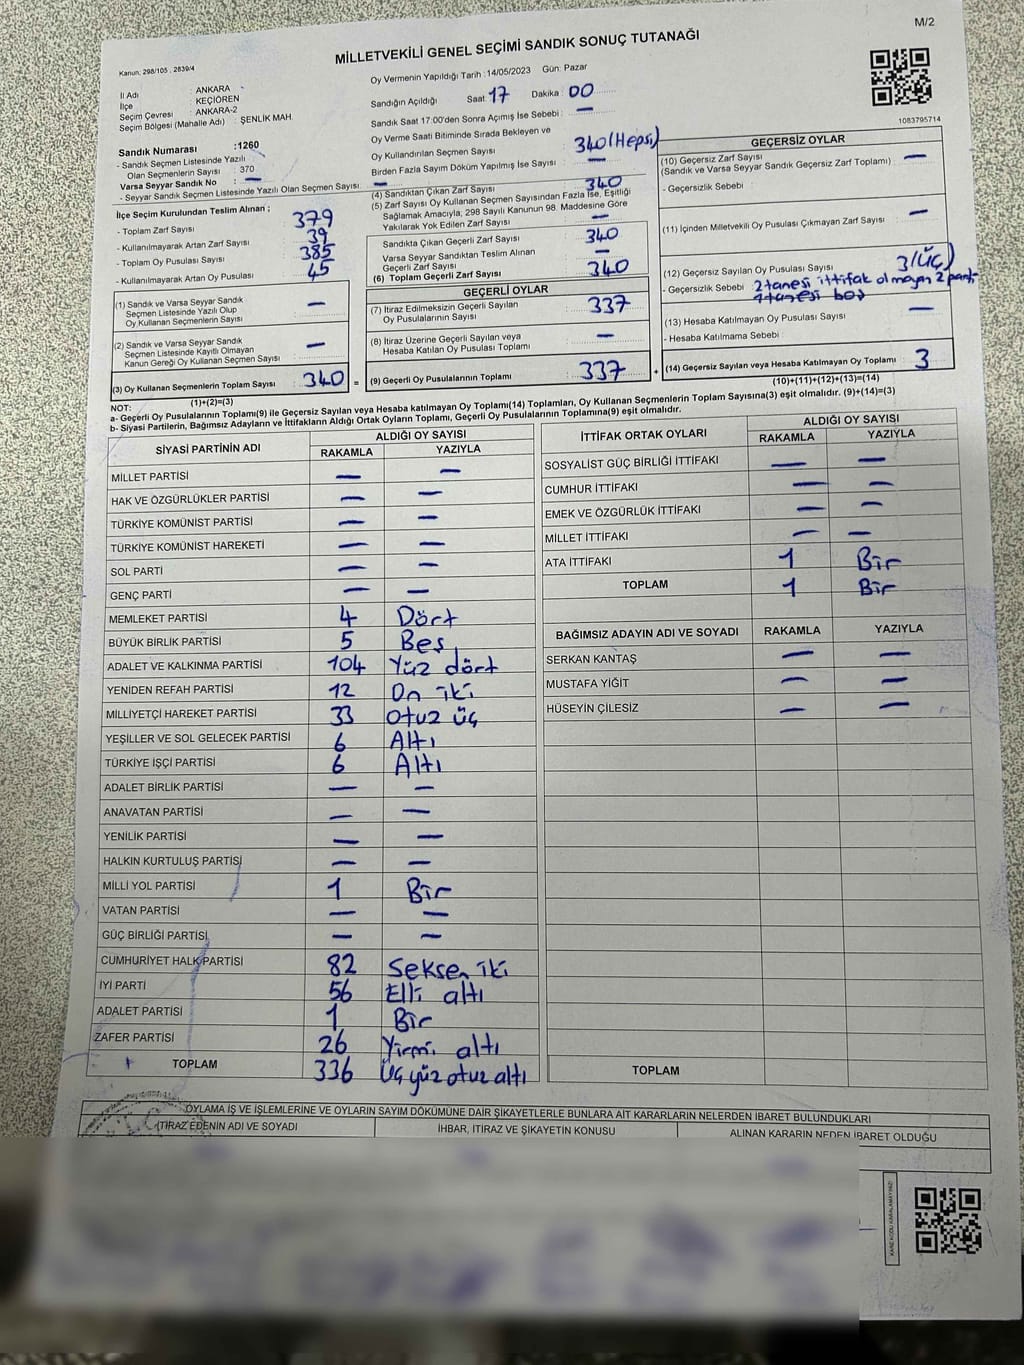 M/2
MİLLETVEKİLİ GENEL SEÇİMİ SANDIK SONUÇ TUTANAĞI
Kanun; 298/105 , 2839/4
İl Adı : ANKARA
İlçe : KEÇİÖREN
Seçim Çevresi : ANKARA-2
Seçim Bölgesi (Mahalle Adı) : ŞENLİK MAH.
Sandık Numarası :1260
- Sandık Seçmen Listesinde Yazılı
Olan Seçmenlerin Sayısı : 370
Varsa Seyyar Sandık No : —
- Seyyar Sandık Seçmen Listesinde Yazılı Olan Seçmen Sayısı: —
İlçe Seçim Kurulundan Teslim Alınan ;
- Toplam Zarf Sayısı : 379
- Kullanılmayarak Artan Zarf Sayısı : 39
- Toplam Oy Pusulası Sayısı : 385
- Kullanılmayarak Artan Oy Pusulası : 45
(1) Sandık ve Varsa Seyyar Sandık
Seçmen Listesinde Yazılı Olup
Oy Kullanan Seçmenlerin Sayısı : —
(2) Sandık ve Varsa Seyyar Sandık
Seçmen Listesinde Kayıtlı Olmayan
Kanun Gereği Oy Kullanan Seçmen Sayısı : —
(3) Oy Kullanan Seçmenlerin Toplam Sayısı : 340 =
(1)+(2)=(3)
Oy Vermenin Yapıldığı Tarih :14/05/2023 Gün: Pazar
Sandığın Açıldığı Saat: 17 Dakika: 00
Sandık Saat 17:00'den Sonra Açımış İse Sebebi : —
Oy Verme Saati Bitiminde Sırada Bekleyen ve
Oy Kullandırılan Seçmen Sayısı : 340 (Hepsi)
Birden Fazla Sayım Döküm Yapılmış İse Sayısı : —
(4) Sandıktan Çıkan Zarf Sayısı : 340
(5) Zarf Sayısı Oy Kullanan Seçmen Sayısından Fazla İse, Eşitliği
Sağlamak Amacıyla, 298 Sayılı Kanunun 98. Maddesine Göre
Yakılarak Yok Edilen Zarf Sayısı : —
Sandıkta Çıkan Geçerli Zarf Sayısı : 340
Varsa Seyyar Sandıktan Teslim Alınan
Geçerli Zarf Sayısı : —
(6) Toplam Geçerli Zarf Sayısı : 340
GEÇERLİ OYLAR
(7) İtiraz Edilmeksizin Geçerli Sayılan
Oy Pusulalarının Sayısı : 337
(8) İtiraz Üzerine Geçerli Sayılan veya
Hesaba Katılan Oy Pusulası Toplamı : —
(9) Geçerli Oy Pusulalarının Toplamı : 337
1083795714
GEÇERSİZ OYLAR
(10) Geçersiz Zarf Sayısı : —
(Sandık ve Varsa Seyyar Sandık Geçersiz Zarf Toplamı)
- Geçersizlik Sebebi :
(11) İçinden Milletvekili Oy Pusulası Çıkmayan Zarf Sayısı : —
(12) Geçersiz Sayılan Oy Pusulası Sayısı : 3 (üç)
- Geçersizlik Sebebi : 2 tanesi ittifak olmayan 2 parti
1 tanesi boş
(13) Hesaba Katılmayan Oy Pusulası Sayısı : —
- Hesaba Katılmama Sebebi :
(14) Geçersiz Sayılan veya Hesaba Katılmayan Oy Toplamı : 3
(10)+(11)+(12)+(13)=(14)
NOT:
a- Geçerli Oy Pusulalarının Toplamı(9) ile Geçersiz Sayılan veya Hesaba katılmayan Oy Toplamı(14) Toplamları, Oy Kullanan Seçmenlerin Toplam Sayısına(3) eşit olmalıdır. (9)+(14)=(3)
b- Siyasi Partilerin, Bağımsız Adayların ve İttifakların Aldığı Ortak Oyların Toplamı, Geçerli Oy Pusulalarının Toplamına(9) eşit olmalıdır.
SİYASİ PARTİNİN ADI ALDIĞI OY SAYISI
RAKAMLA YAZIYLA
MİLLET PARTİSİ — —
HAK VE ÖZGÜRLÜKLER PARTİSİ — —
TÜRKİYE KOMÜNİST PARTİSİ — —
TÜRKİYE KOMÜNİST HAREKETİ — —
SOL PARTİ — —
GENÇ PARTİ — —
MEMLEKET PARTİSİ 4 Dört
BÜYÜK BİRLİK PARTİSİ 5 Beş
ADALET VE KALKINMA PARTİSİ 104 Yüz dört
YENİDEN REFAH PARTİSİ 12 On iki
MİLLİYETÇİ HAREKET PARTİSİ 33 Otuz üç
YEŞİLLER VE SOL GELECEK PARTİSİ 6 Altı
TÜRKİYE İŞÇİ PARTİSİ 6 Altı
ADALET BİRLİK PARTİSİ — —
ANAVATAN PARTİSİ — —
YENİLİK PARTİSİ — —
HALKIN KURTULUŞ PARTİSİ — —
MİLLİ YOL PARTİSİ 1 Bir
VATAN PARTİSİ — —
GÜÇ BİRLİĞİ PARTİSİ — —
CUMHURİYET HALK PARTİSİ 82 Seksen iki
İYİ PARTİ 56 Elli altı
ADALET PARTİSİ 1 Bir
ZAFER PARTİSİ 26 Yirmi altı
TOPLAM 336 Üç yüz otuz altı
İTTİFAK ORTAK OYLARI ALDIĞI OY SAYISI
RAKAMLA YAZIYLA
SOSYALİST GÜÇ BİRLİĞİ İTTİFAKI — —
CUMHUR İTTİFAKI — —
EMEK VE ÖZGÜRLÜK İTTİFAKI — —
MİLLET İTTİFAKI — —
ATA İTTİFAKI 1 Bir
TOPLAM 1 Bir
BAĞIMSIZ ADAYIN ADI VE SOYADI RAKAMLA YAZIYLA
SERKAN KANTAŞ — —
MUSTAFA YİĞİT — —
HÜSEYİN ÇİLESİZ — —
TOPLAM
OYLAMA İŞ VE İŞLEMLERİNE VE OYLARIN SAYIM DÖKÜMÜNE DAİR ŞİKAYETLERLE BUNLARA AİT KARARLARIN NELERDEN İBARET BULUNDUKLARI
İTİRAZ EDENİN ADI VE SOYADI İHBAR, İTİRAZ VE ŞİKAYETİN KONUSU ALINAN KARARIN NEDEN İBARET OLDUĞU
KARE KODU KARALAMAYINIZ!